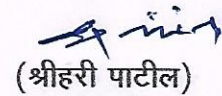 (श्रीहरी पाटील)